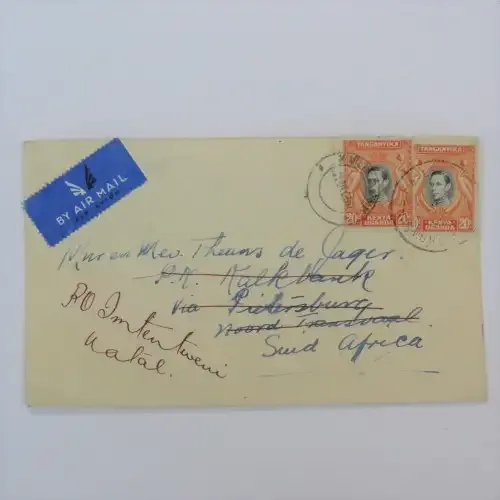 TANGANYIKA TANGANYIKA
20c KENYA UGANDA 20c KENYA UGANDA
BY AIR MAIL
PAR AVION
Mnr en Mev. Theuns de Jager.
P.K. Kalkbank
via Pietersburg
Noord Transvaal
Suid Africa
PO Imtentweni
Natal.